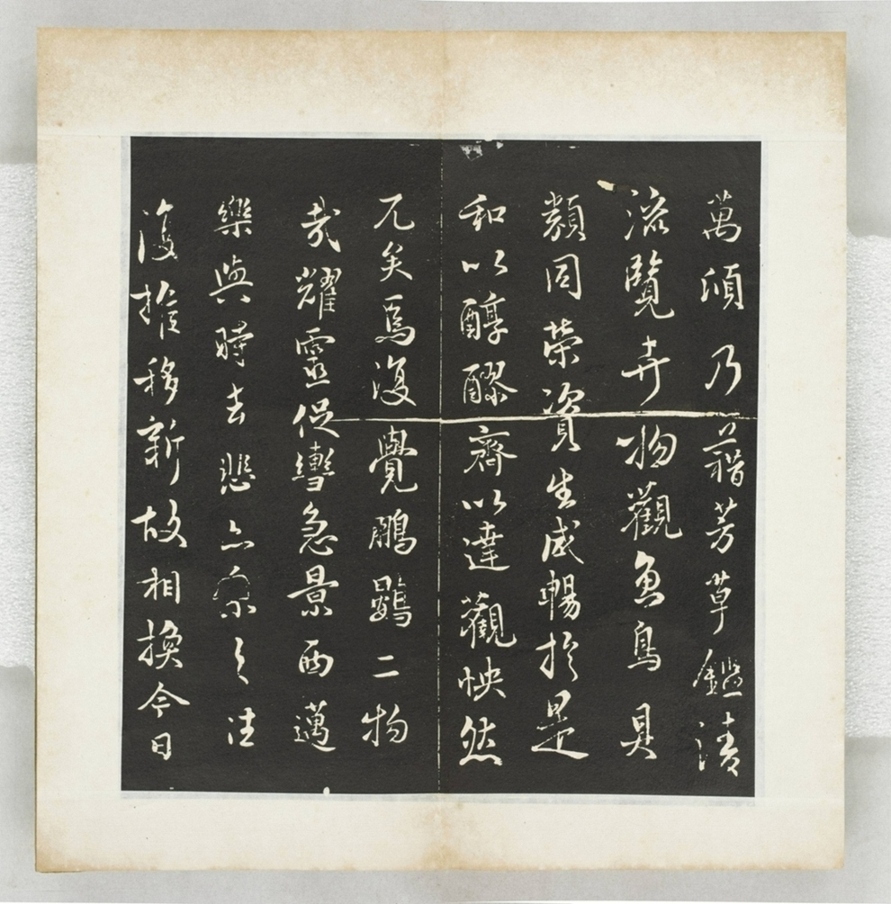 萬頃乃藉芳草鑑清
流覽卉物觀魚鳥具
類同榮資生咸暢於是
和以醇醪齊以達觀怏然
兀矣焉復覺鵬鷃二物
哉耀靈促轡急景西邁
樂與時去悲亦系之往
復推移新故相換今日